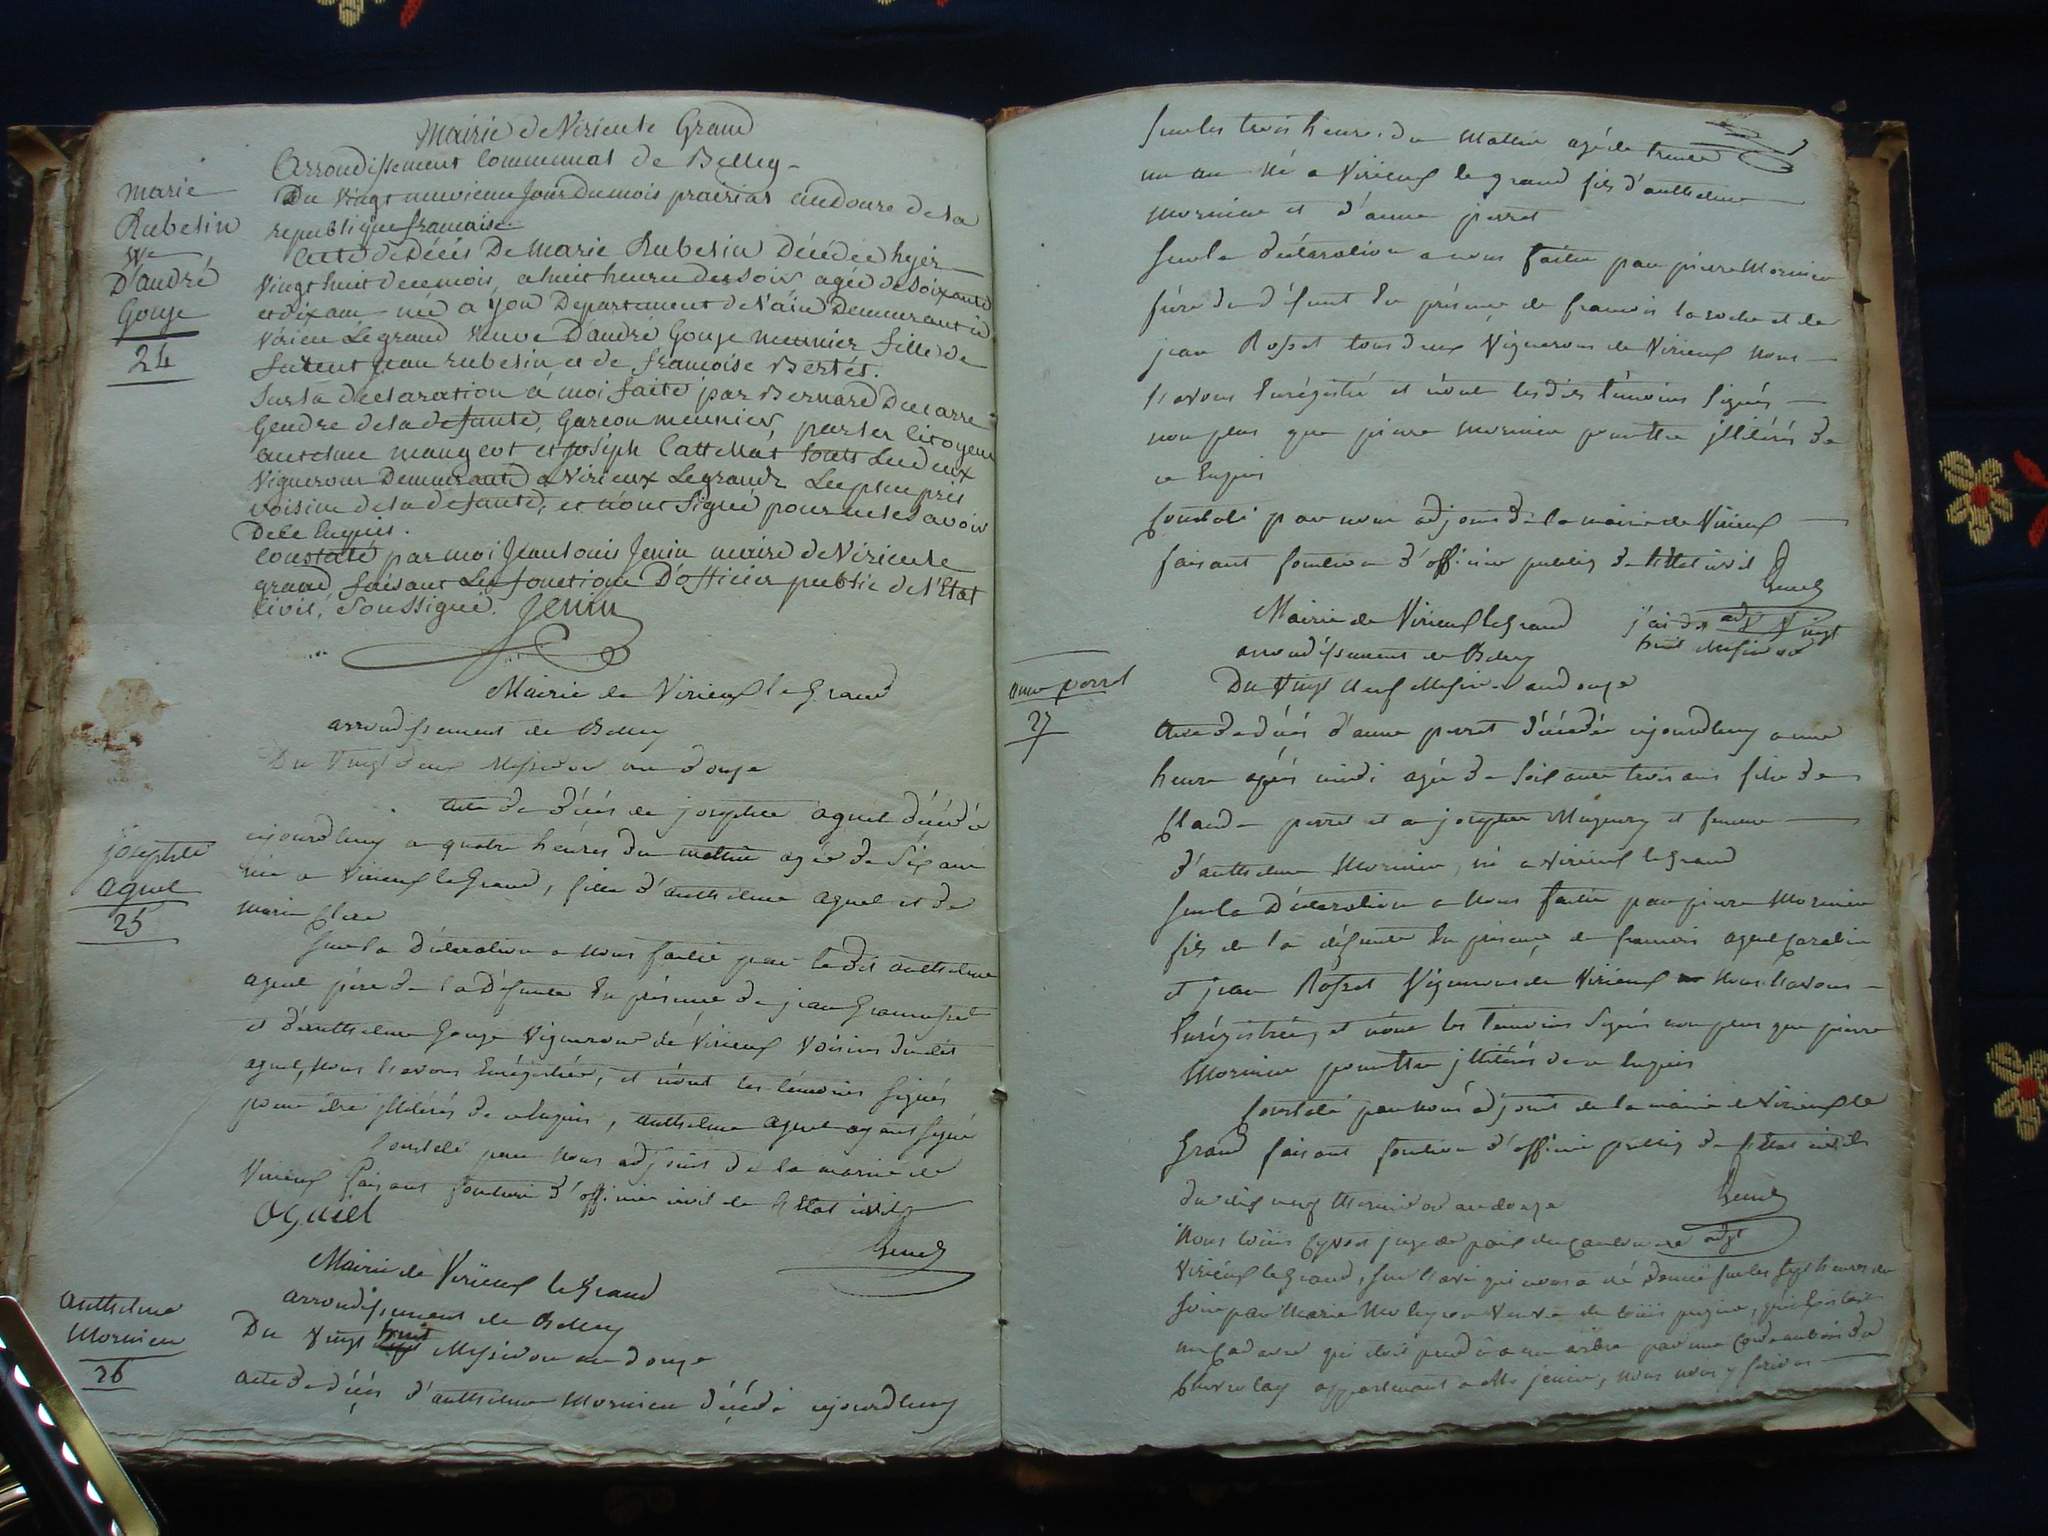 Mairie de Virieu le Grand
Arrondissement Communal de Belley
marie
Rubelin
Ve
D'andré
Gouje
24
Du vingt neuvieme Jour Du mois prairial an douze de la
republique francaise.
Acte de Décés De Marie Rubelin Décédée hyer
vingt huit de ce mois, a huit heure de soir agée de soixante
et dix ans née a yon Departament de l'ain Demeurant a
Virieu Le grand veuve D'andré Gouje meunier fille de
feu Jean rubelin et de francoise Bertét.
Sur la déclaration á moi faite par Bernard Ducarre
Gendre de la defunte, Garcon meunier, par les citoyens
antelme maugeot et Joseph Cattellat touts Les deux
vignerons Demeurants a Virieux Le grand Les plus près
voisins de la defunte, et n'ont Signé pour ne le savoir
De ce Enquis.
Constaté par moi Jean Louis Jenin maire de Virieu le
grand faisant Les fonctions D'officier public de l'Etat
Civil, Soussigné. Jenin
Mairie de Virieux le Grand
arrondissement de Belley
Du Vingt deux Messidor an douze
josephte
aguel
25
acte de décés de josephte aguel décédé
ajourdhuy a quatre héures du matin agée de Six ans
née a Virieux le Grand, fille d'anthelme aguel et de
marie
Sur la Déclaration a nous faitte par ledit anthelme
aguel pére de la Défunte En présence de jean
et d'anthelme Gouge Vignerons de Virieux Voisins dudit
aguel, Nous l'avons Enrégistrée, et n'ont les témoins signés
pour être jllitérés de ce Enquis, anthelme aguel ayant signé
Constaté par Nous adjoint de la mairie de
Virieux faisant fonction d'officier civil de l'Etat civil
aguel
Mairie de Virieux le Grand
arrondissement de Belley
anthelme
Mornieu
26
Du Vingt huit Messidor an douze
acte de décés d'anthelme Mornieu décédé ajourdhuy
Sur les trois heures du Matin agé de trente
un an Né a Virieux le grand fils d'anthelme
Mornieu et d'anne perret
Sur la déclaration a nous faitte par pierre Mornieu
frére du défunt En présence de francois la roche et de
jean Rosset tous deux Vignerons de Virieux Nous
l'avons Enrégistré et n'ont lesdits témoins Signés
non plus que pierre Mornieu pour être jllitérés de
ce Enquis
Constaté par nous adjoint de la mairie de Virieux
faisant fonction d'officier public de l'Etat civil
j'ai dit Vingt
huit Messidor
Mairie de Virieux le Grand
arrondissement de Belley
anne perret
27
Du Vingt Neuf Messidor an douze
Acte de décés d'anne perret décédée ajourdhuy a une
heure aprés midi agée de Soixante trois ans fille de
Claude perret et de josephte et femme
d'anthelme Mornieu, né a Virieux le Grand
Sur la Déclaration a Nous faitte par pierre Mornieu
fils de la défunte En présence de francois aguel
et jean Rosset Vignerons de Virieux Nous l'avons
Enrégistrée, et n'ont les temoins Signés non plus que pierre
Mornieu pour être jllitérés de ce Enquis
Constaté par Nous adjoint de la mairie de Virieux le
Grand faisant fonction d'officier public de l'Etat civil
du dix neuf an douze
adjt
Nous juge de paix du canton de
Virieux le Grand, Sur l'avis qui nous a été donné sur les sept heures du
soir par Marie Veuve de
un cadavre qui étoit pendu a un arbre par une corde au bois de
appartenant a jenin, nous nous y